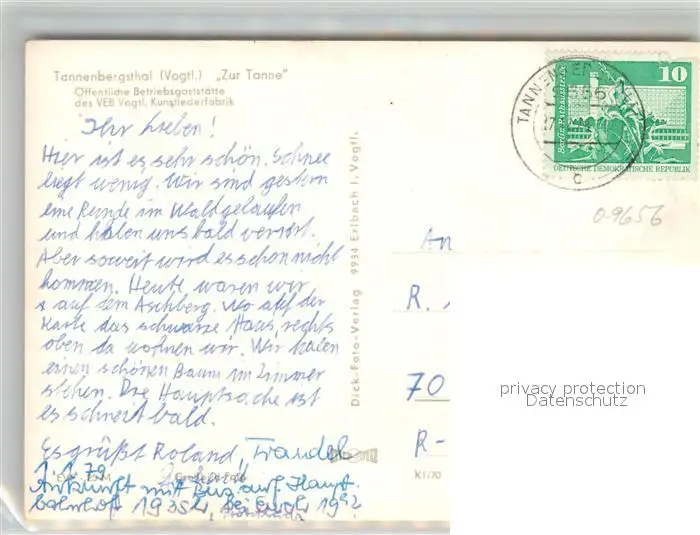 Tannenbergsthal (Vogtl.) „Zur Tanne"
Öffentliche Betriebsgaststätte
des VEB Vogtl. Kunstlederfabrik
Ihr Lieben!
Hier ist es sehr schön. Schnee
liegt wenig. Wir sind gestern
eine Runde im Wald gelaufen
und haben uns bald verirrt.
Aber soweit wird es schon nicht
kommen. Heute waren wir
auf dem Aschberg. Wo auf der
Karte das schwarze Haus, rechts
oben da wohnen wir. Wir haben
einen schönen Baum im Zimmer
stehen. Die Hauptsache ist
es schneit bald.
Es grüßt Roland, Traudel
1.1.79
Ankunft mit Bus auf Haupt-
bahnhof
Dick-Foto-Verlag 9934 Erlbach i. Vogtl.
K1/70
TANNENBER
10
Berlin, Rathausstraße
DEUTSCHE DEMOKRATISCHE REPUBLIK
c
09656
An
R.
70
R-
privacy protection
Datenschutz